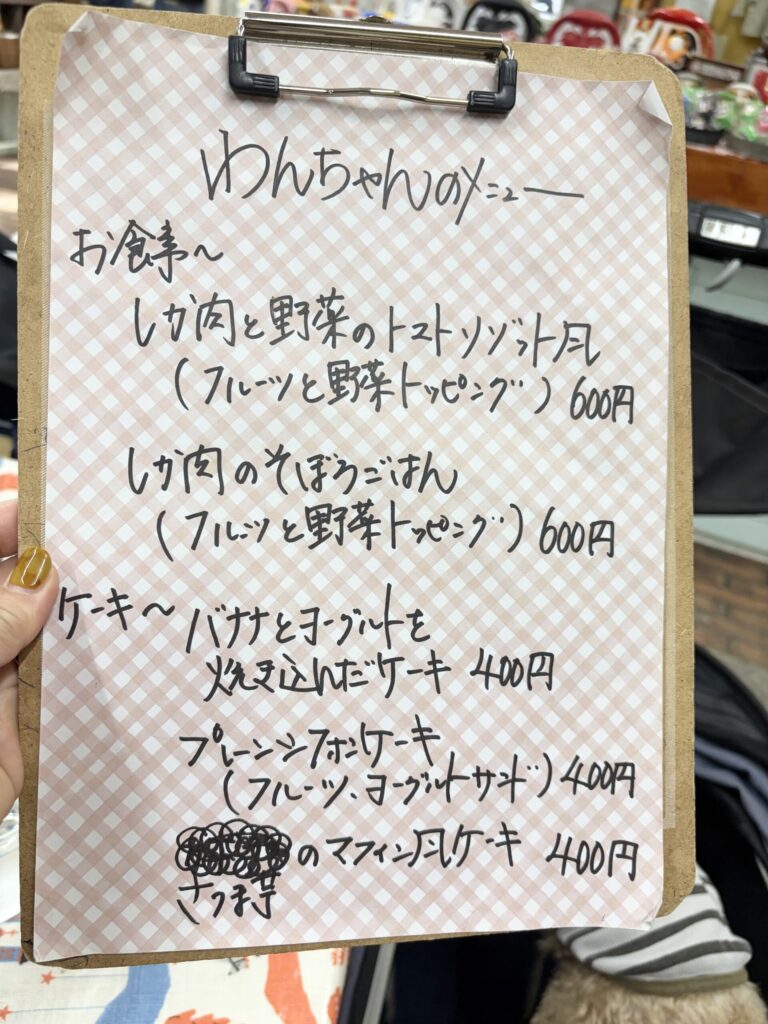 わんちゃんのメニュー
お食事～
しか肉と野菜のトマトリゾット風
(フルーツと野菜トッピング) 600円
しか肉のそぼろごはん
(フルーツと野菜トッピング) 600円
ケーキ～ バナナとヨーグルトを
焼き込んだケーキ 400円
プレーンシフォンケーキ
(フルーツ、ヨーグルトサンド) 400円
のマフィン風ケーキ 400円
さつま芋